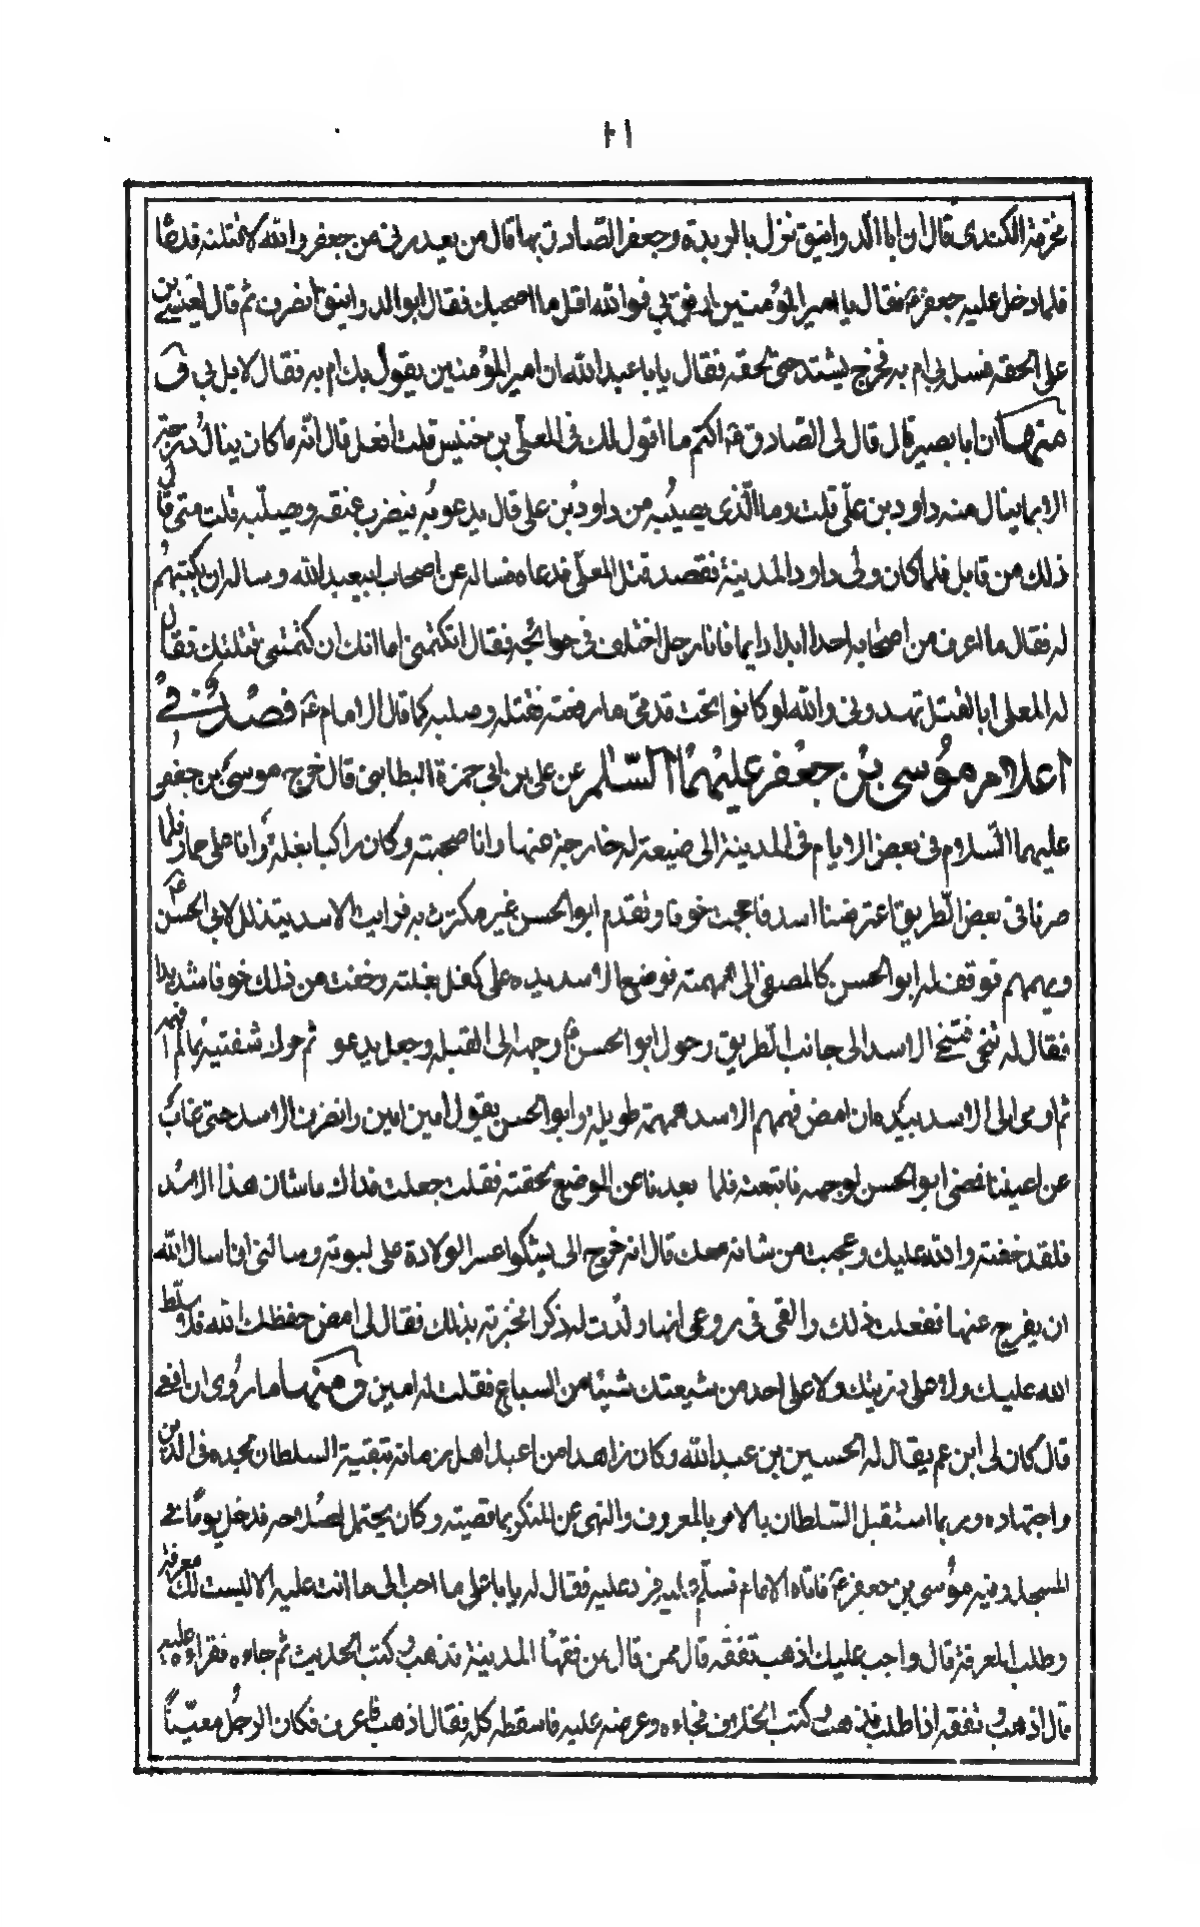 مخرمة الكندى قال ان ابا الدوانيق نزل بالربذة وجعفر الصادق بها قال من يعذرنى من جعفر والله لاقتلنه فدعا
فلما دخل عليه جعفر ع فقال يا امير المؤمنين ارفق بي فوالله اقل ما اصحبك فقال ابو الدوانيق انصرف ثم قال لعيسى بن
على الحقه فسله بي ام به فخرج يشتد حتى لحقه فقال يا با عبد الله ان امير المؤمنين يقول بك ام به فقال لا بل بي ق
منها ان ابا بصير قال قال لى الصادق ع اكتم ما اقول لك فى المعلى بن خنيس قلت افعل قال انه ما كان ينال درجتنا
الا بما ينال منه داود بن على قلت وما الذى يصيبه من داود بن على قال يدعو به فيضرب عنقه ويصلبه قلت متى قال
ذلك من قابل فلما كان ولى داود المدينة فقصد قتل المعلى فدعاه فساله عن اصحاب ابيعبد الله وساله ان يكتبهم
له فقال ما اعرف من اصحابه احدا انما انا رجل اختلف فى حوائجه فقال اتكتمنى اما انك ان كتمتنى قتلتك فقال
له المعلى ابالقتل تهددونى والله لو كانوا تحت قدمى ما رفعته فقتله وصلبه كما قال الامام ع فصل في
اعلام موسى بن جعفر عليهما السلام عن على بن ابي حمزة البطاينى قال خرج موسى بن جعفر
عليهما السلام فى بعض الايام فى المدينة الى ضيعة له خارجة عنها وانا صحبته وكان راكبا بغلة وانا على حمار فلما
صرنا فى بعض الطريق اعترضنا اسد فاحجمت خوفا وتقدم ابو الحسن غير مكترث به فرايت الاسد يتذلل لابي الحسن ع
ويهمهم فوقف له ابو الحسن كالمصغى الى همهمته فوضع الاسد يده على كفل بغلته وخفت من ذلك خوفا شديدا
فقال له تنحى فتنحى الاسد الى جانب الطريق وحول ابو الحسن ع وجهه الى القبلة وجعل يدعو ثم حرك شفتيه بما لم افهمه
ثم اومى الى الاسد بيده ان امض فهمهم الاسد همهمة طويلة وابو الحسن يقول امين امين وانصرف الاسد حتى غاب
عن اعيننا فمضى ابو الحسن لوجهه فاتبعته فلما بعدنا عن الموضع لحقته فقلت جعلت فداك ما شان هذا الاسد
فلقد خفته والله عليك وعجبت من شانه معك قال انه خرج الى يشكوا عسر الولادة على لبوته وسالنى ان اسال الله
ان يفرج عنها ففعلت ذلك والقى فى روعى انها ولدت له ذكرا فخبرته بذلك فقال لى امض حفظك الله فلا سلط
الله عليك ولا على ذريتك ولا على احد من شيعتك شيئا من السباع فقلت له امين ق منها ما روى ان رافعى
قال كان لى ابن عم يقال له الحسين بن عبد الله وكان زاهدا من اعبد اهل زمانه تتقيه السلطان لجده فى الدين
واجتهاده وربما استقبل السلطان بالامر بالمعروف والنهى عن المنكر بما قضيته وكان يحتمل لصلاحه فدخل يوما في
المسجد وفيه موسى بن جعفر ع فاتاه الامام فسلم اليه فرد عليه فقال له يا با على ما احب الى ما انت عليه الا ليست لك معرفة
وطلب المعرفة قال واجب عليك اذهب تفقه قال ممن قال من فقها المدينة فذهب وكتب الحديث ثم جاءه فقراوه عليه
قال اذهب وتفقه اذا طلب فذهب وكتب الخلاف فجاءه وعرضه عليه فاسقطه كله فقال اذهب فاعرف فكان الرجل معينا